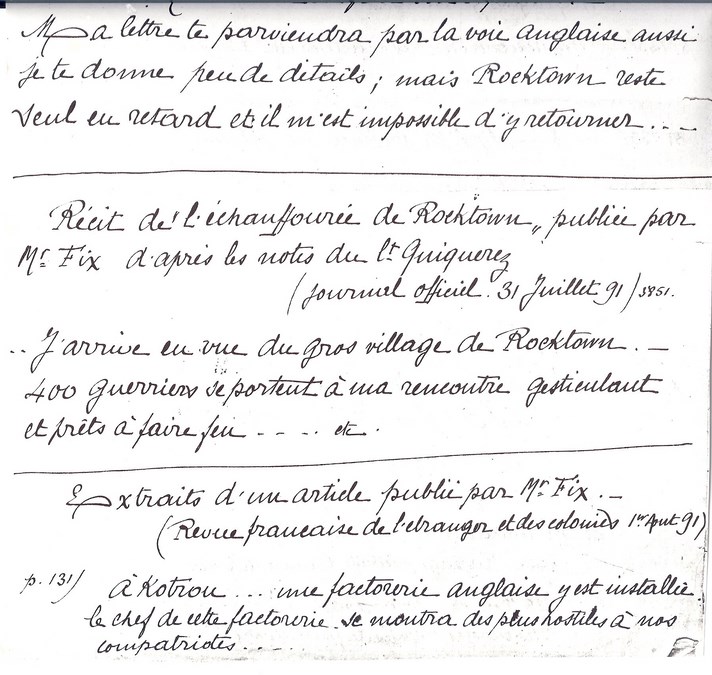 Ma lettre te parviendra par la voie anglaise aussi
je te donne peu de détails ; mais Rocktown reste
seul en retard et il m'est impossible d'y retourner . . —
Récit de l'échauffourée de Rocktown, publiée par
Mr. Fix d'après les notes du lt Quiquerez
(Journal officiel. 31 Juillet 91) 3851.
.. J'arrive en vue du gros village de Rocktown . —
400 guerriers se portent à ma rencontre gesticulant
et prêts à faire feu - - - . . etc .
Extraits d'un article publié par Mr. Fix . —
(Revue francaise de l'etranger et des colonies 1er Aout 91)
p. 131) à Kotrou ... une factorerie anglaise y est installée.
le chef de cette factorerie se montra des plus hostiles à nos
compatriotes . . . . .